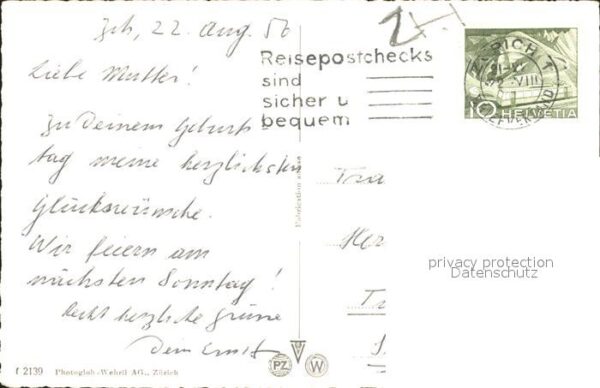 Zch, 22. Aug. 56
Liebe Mutter!
Zu Deinem Geburts-
tag meine herzlichsten
Glückwünsche.
Wir feiern am
nächsten Sonntag!
Recht herzliche Grüsse
Dein Ernst
Reisepostchecks
sind
sicher u
bequem
ZÜRICH 1
VIII
BRIEFVERSAND
10 HELVETIA
Fabrication suisse
Tra
Her
privacy protection
Datenschutz
PZ W
f 2139 Photoglob-Wehrli AG., Zürich